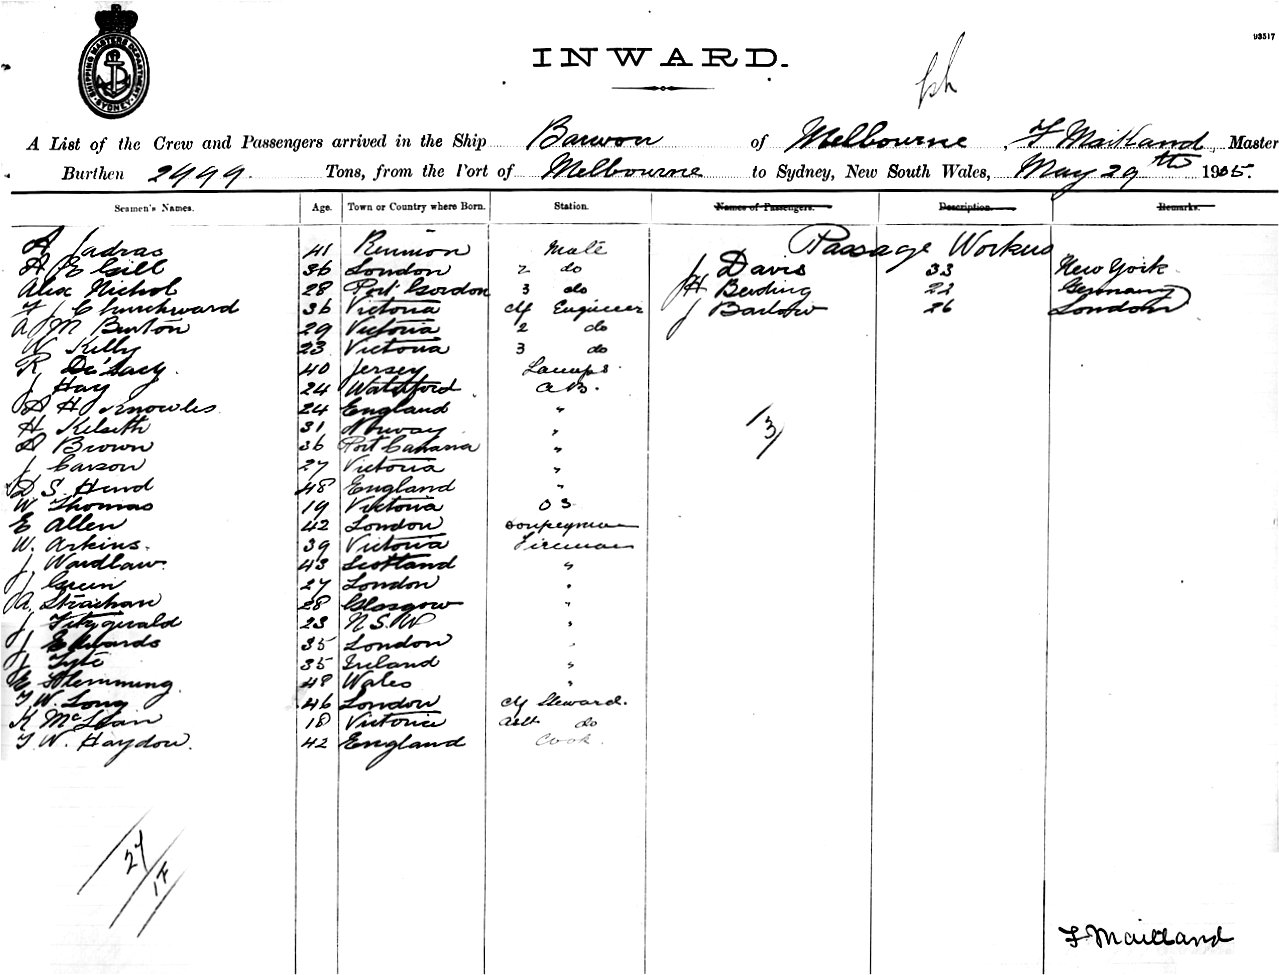 SHIPPING MASTERS DEPARTMENT SYDNEY
93517
INWARD.
A List of the Crew and Passengers arrived in the Ship Barwon of Melbourne, F Maitland, Master
Burthen 2999 Tons, from the Port of Melbourne to Sydney, New South Wales, May 29th 1905.
Seamen's Names. Age. Town or Country where Born. Station. Names of Passengers. Description. Remarks.
Passage Workers
A Jadras 41 Reunion Mate
A E Gill 36 London 2 do J Davis 33 New York
Alex Nichol 28 Port Gordon 3 do H Berding 22 Germany
F J Churchward 36 Victoria Cf Engineer J Barlow 26 London
A M Burton 29 Victoria 2 do
W Kelly 23 Victoria 3 do
R De'Lacy 40 Jersey Lamps
J Hay 24 Waterford A B.
A H Knowles 24 England "
H Kelseth 31 Norway "
A Brown 36 Port "
J Carson 27 Victoria "
D S. Hind 48 England "
W Thomas 19 Victoria O S
E Allen 42 London
W. Arkins. 39 Victoria Fireman
J Wardlaw 43 Scotland "
J Green 27 London "
A Strachan 28 Glasgow "
J Fitzgerald 23 N.S.W "
J Edwards 35 London "
J Tyte 35 Ireland "
E Flemming 48 Wales "
T W. Long 46 London Cf Steward.
K McLean 18 Victoria Asst do
T W. Haydon. 42 England Cook.
3
27
1F
F Maitland